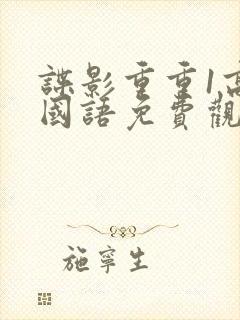 諜影重重1高
國語免費觀
施寧生